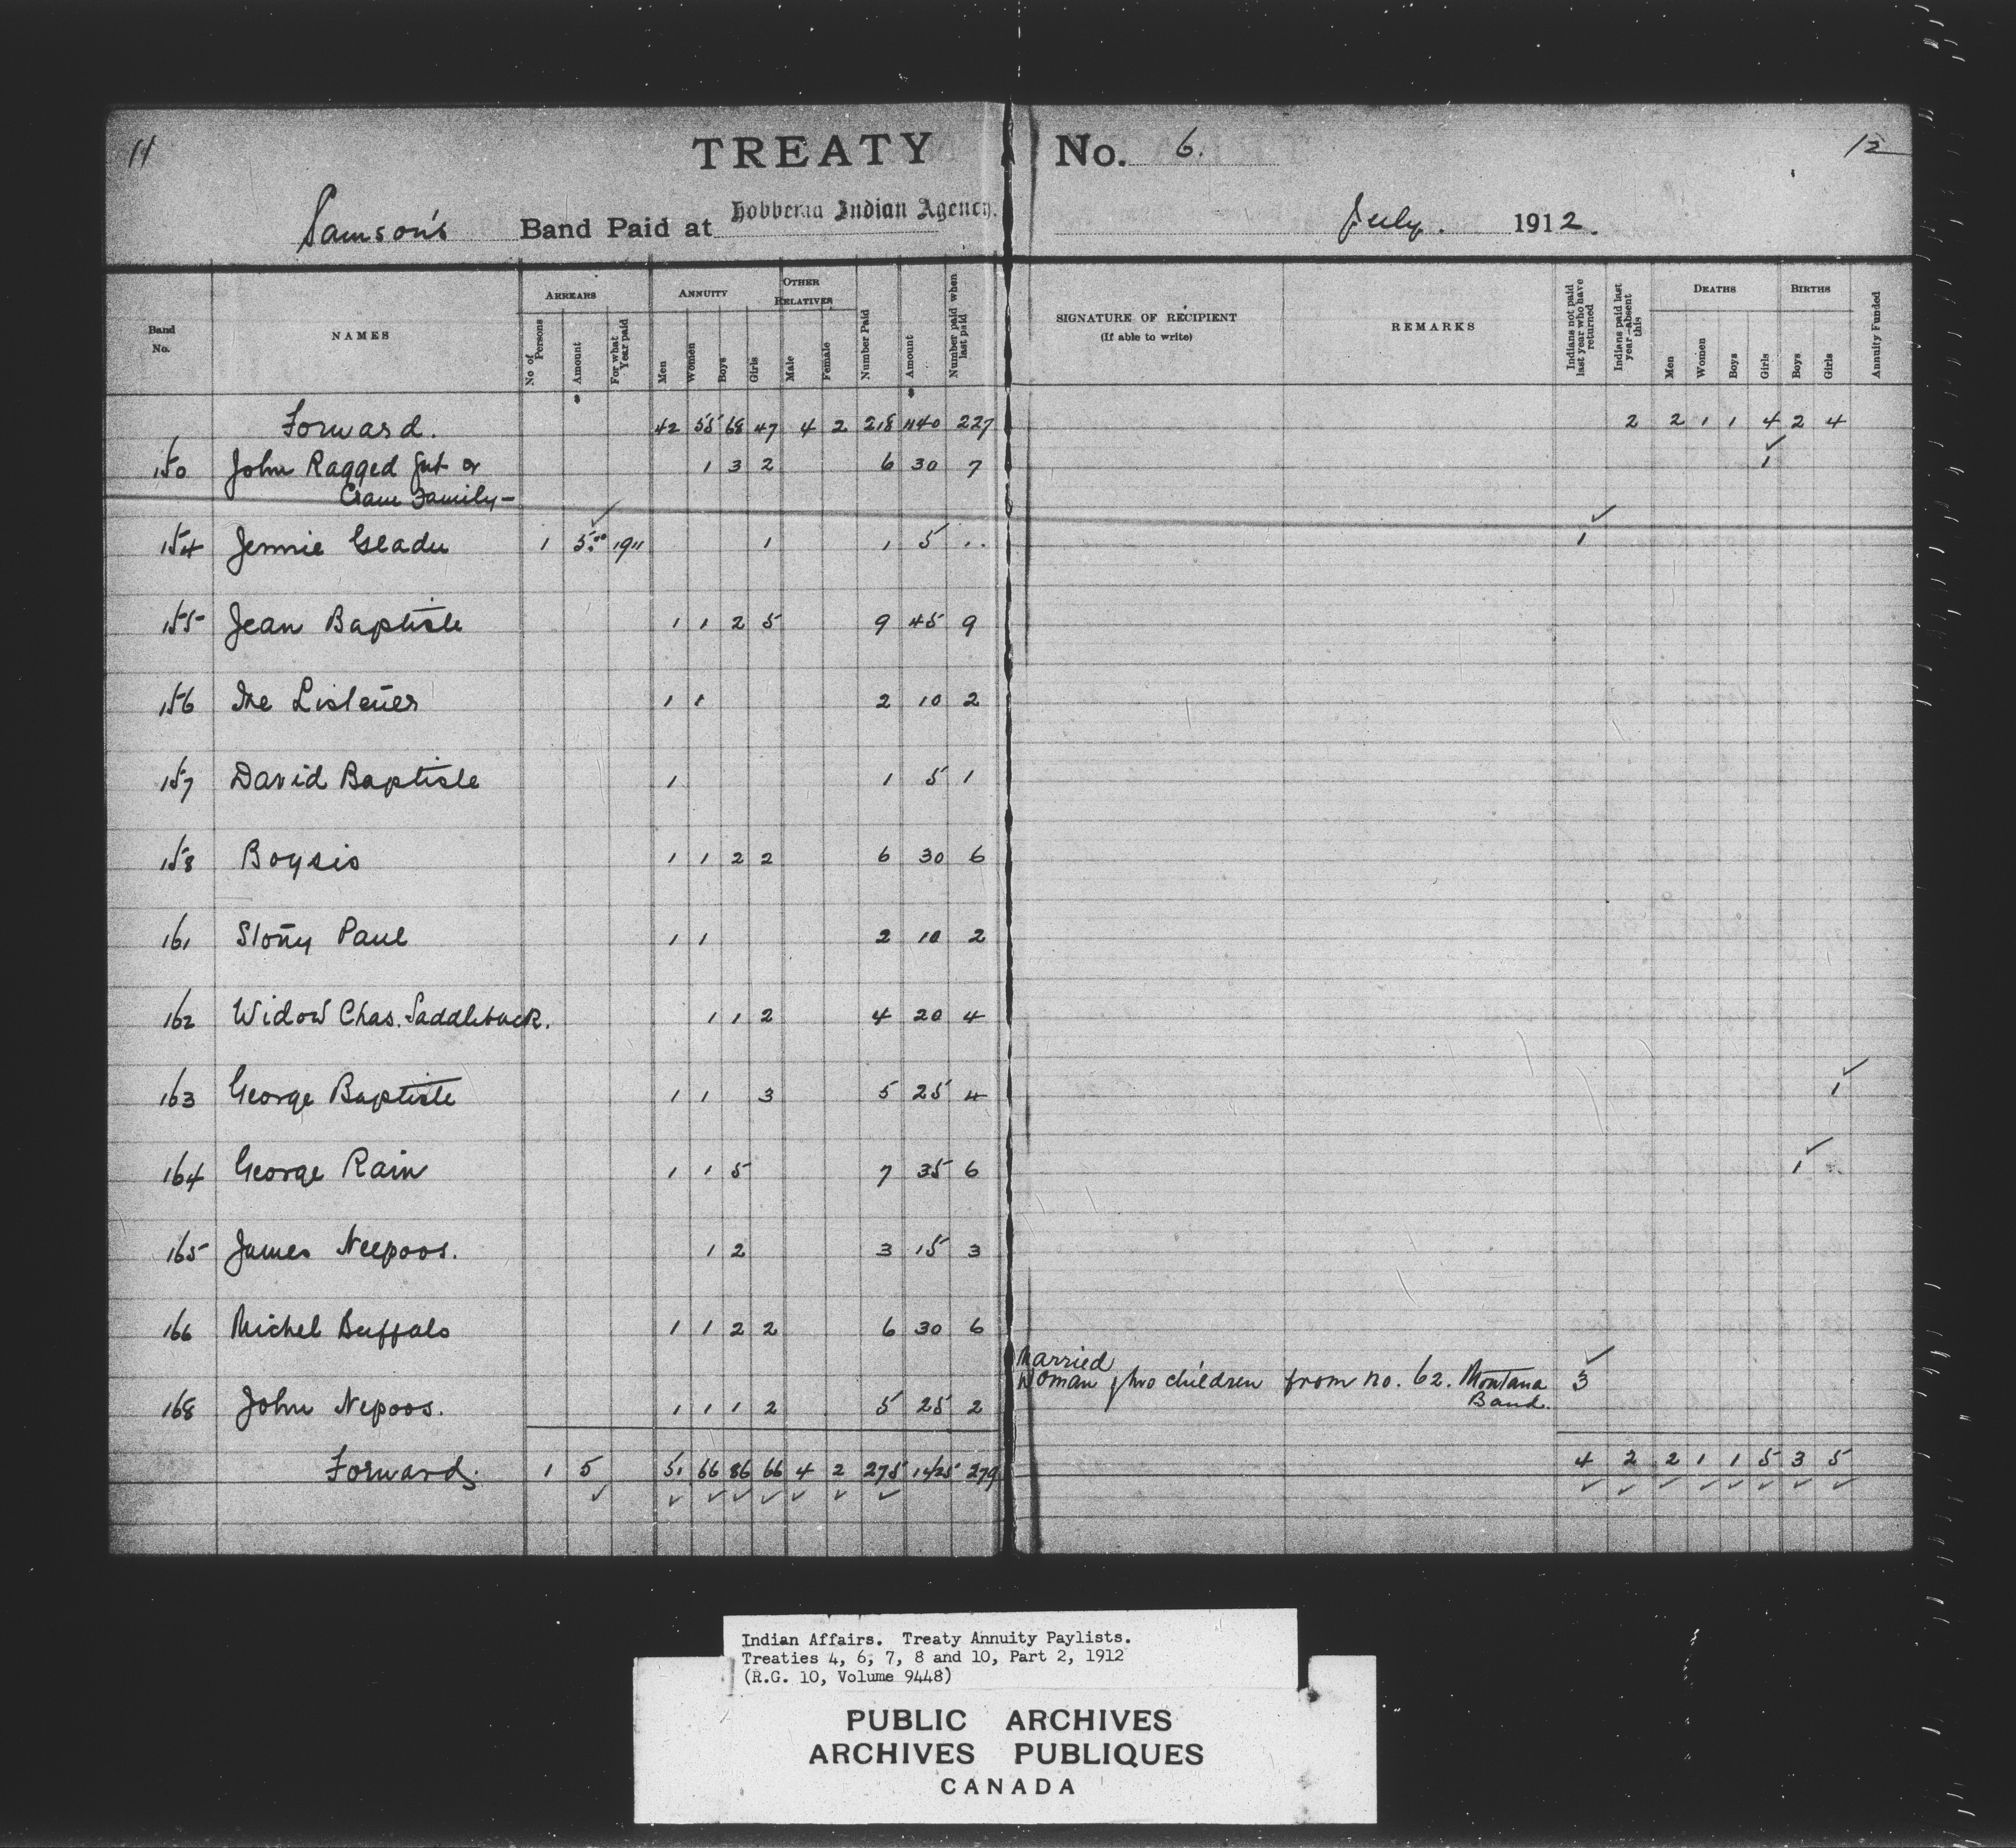 11
TREATY No. 6. 12
Samson's Band Paid at Hobbema Indian Agency. July. 1912.
Band No. NAMES ARREARS ANNUITY OTHER RELATIVES Number Paid Amount Number paid when last paid SIGNATURE OF RECIPIENT (If able to write) REMARKS Indians not paid last year who have returned Indians paid last year—absent this DEATHS BIRTHS Annuity Funded
No of Persons Amount For what Year paid Men Women Boys Girls Male Female Men Women Boys Girls Boys Girls
Forward. 42 55 68 47 4 2 218 1140 227 2 2 1 1 4 2 4
150 John Ragged Gut or 1 3 2 6 30 7 1
Cram Family —
154 Jennie Geadu 1 5.00 1911 1 1 5 .. 1
155 Jean Baptiste 1 1 2 5 9 45 9
156 The Listener 1 1 2 10 2
157 David Baptiste 1 1 5 1
158 Boysis 1 1 2 2 6 30 6
161 Stony Paul 1 1 2 10 2
162 Widow Chas. Saddleback. 1 1 2 4 20 4
163 George Baptiste 1 1 3 5 25 4 1
164 George Rain 1 1 5 7 35 6 1
165 James Neepoos. 1 2 3 15 3
166 Michel Buffalo 1 1 2 2 6 30 6
Married
Woman & two children from no. 62. Montana 3
Band.
168 John Nepoos. 1 1 1 2 5 25 2
Forward. 1 5 51 66 86 66 4 2 275 1425 279 4 2 2 1 1 5 3 5
Indian Affairs. Treaty Annuity Paylists.
Treaties 4, 6, 7, 8 and 10, Part 2, 1912
(R.G. 10, Volume 9448)
PUBLIC ARCHIVES
ARCHIVES PUBLIQUES
CANADA